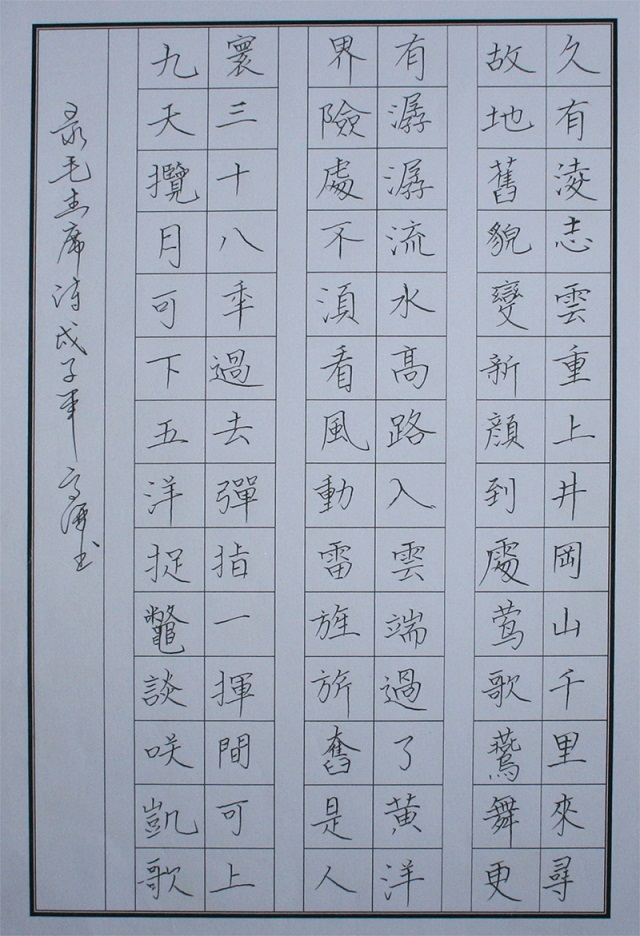 久有淩志雲重上井岡山千里來尋
故地舊貌變新顏到處莺歌鷰舞更
有潺潺流水高路入雲端過了黄洋
界險處不湏看風動雷旌旂奮是人
寰三十八秊過去彈指一揮間可上
九天攬月可下五洋捉鼈談咲凱歌
录毛主席诗戊子年 高书